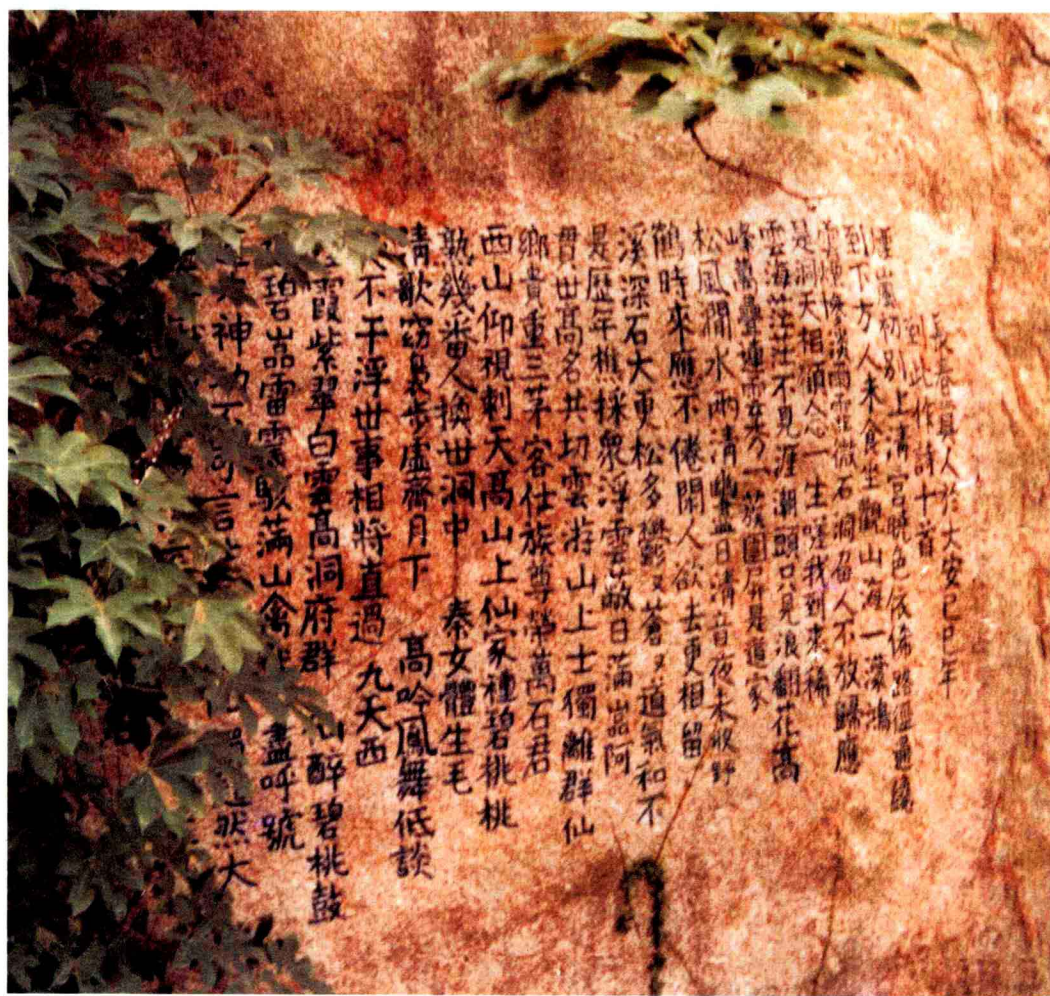 長春真人於大安己巳年
到此作詩十首
煙嵐初別上清宮曉色依俙路徑通纔
到下方人未食坐觀山海一濛鴻
煙慘淡雨霏微石洞留人不放歸應
是洞天相顧念一生嗟我到來稀
雲海茫茫不見涯潮頭只見浪翻花高
峰萬疊連雲秀一簇圍屏是道家
松風澗水兩清幽盡日清音夜未收野
鶴時來應不倦閑人欲去更相留
溪深石大更松多鬱又蒼又道氣和不
是歷年樵採衆浮雲蔽日滿嵓阿
貫世高名共切雲游山上士獨離群仙
鄉貴重三茅客仕族尊榮萬石君
西山仰視刺天高山上仙家種碧桃桃
熟幾番人換世洞中 秦女體生毛
清歌窈裊步虛齋月下 高吟鳳舞低談
不干浮世事相將直過 九天西
霞紫翠白雲高洞府群 醉碧桃鼓
碧嵓雷震駭滿山禽 盡呼號
神功 言 然大